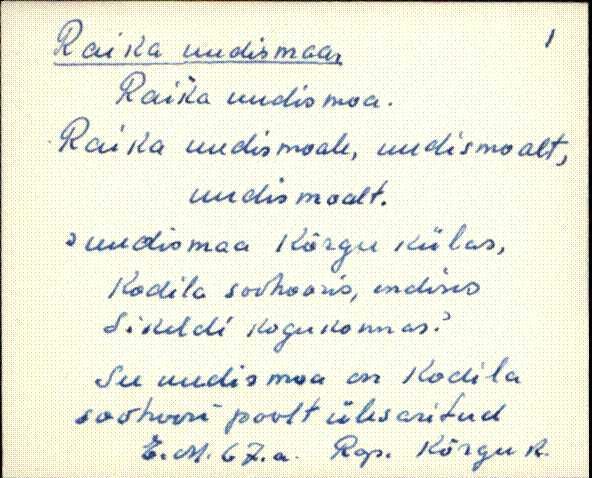 Raika uudismaa, 1
Raika uudismoa.
Raika uudismoale, uudismoalt,
uudismoalt.
? uudismaa Kõrgu külas,
Kodila sovhoosis, endises
Sikeldi kogukonnas.?
See uudismoa on Kodila
sovhoosi poolt ülesaritud
E.M. 67.a. Rap. Kõrgu k.